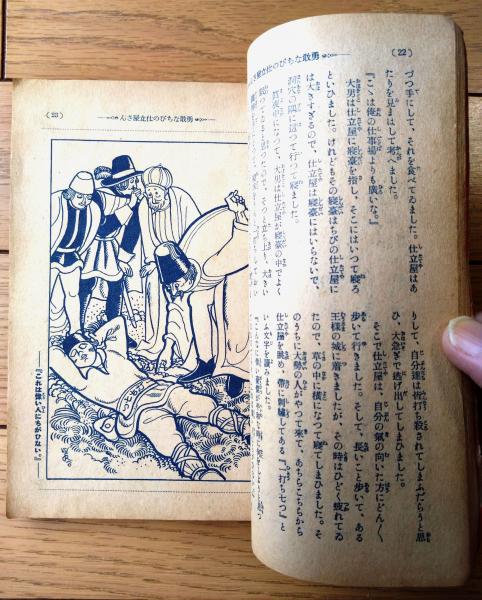 (22)
勇敢なちびの仕立屋さん
づつ手にして、それを食べてゐました。仕立屋はあ
たりを見まはして考へました。
『こゝは俺の仕事場よりも廣いな。』
大男は仕立屋に寢臺を指し、そこにはいつて寢ろ
といひました。けれどもその寢臺はちびの仕立屋に
は大きすぎるので、仕立屋は寢臺にはいらないで、
洞穴の隅に這つて行つて寢ました。
眞夜中になつて、大男は仕立屋が寢臺の中でよく
りして、自分達は皆打ち殺されてしまふだらうと思
ひ、大急ぎで逃げ出してしまひました。
そこで仕立屋は、自分の氣の向いた方にどん〳〵
歩いて行きました。そして、長いこと歩いて、ある
王樣の城に着きましたが、その時はひどく疲れてゐ
たので、草の中に横になつて寢てしまひました。そ
のうちに大勢の人がやつて來て、あちらこちらから
仕立屋を眺め、帶に刺繍してある『一打ち七つ』と
いふ文字を讀みました。
(23)
勇敢なちびの仕立屋さん
『これは偉い人にちがひない。』